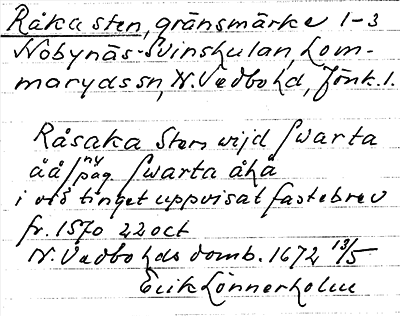 Råka sten, gränsmärke 1-3
Nobynäs-Svinskulan, Lom-
marydssn, N. Vedbo hd, Jönk. l.
Råsaka Sten wijd Swarta
åå / ny pag. Swarta åhå
i vid tinget uppvisat fastebrev
fr. 1570 22 oct
N. Vedbo hds domb. 1672 13/5
Erik Lönnerholm